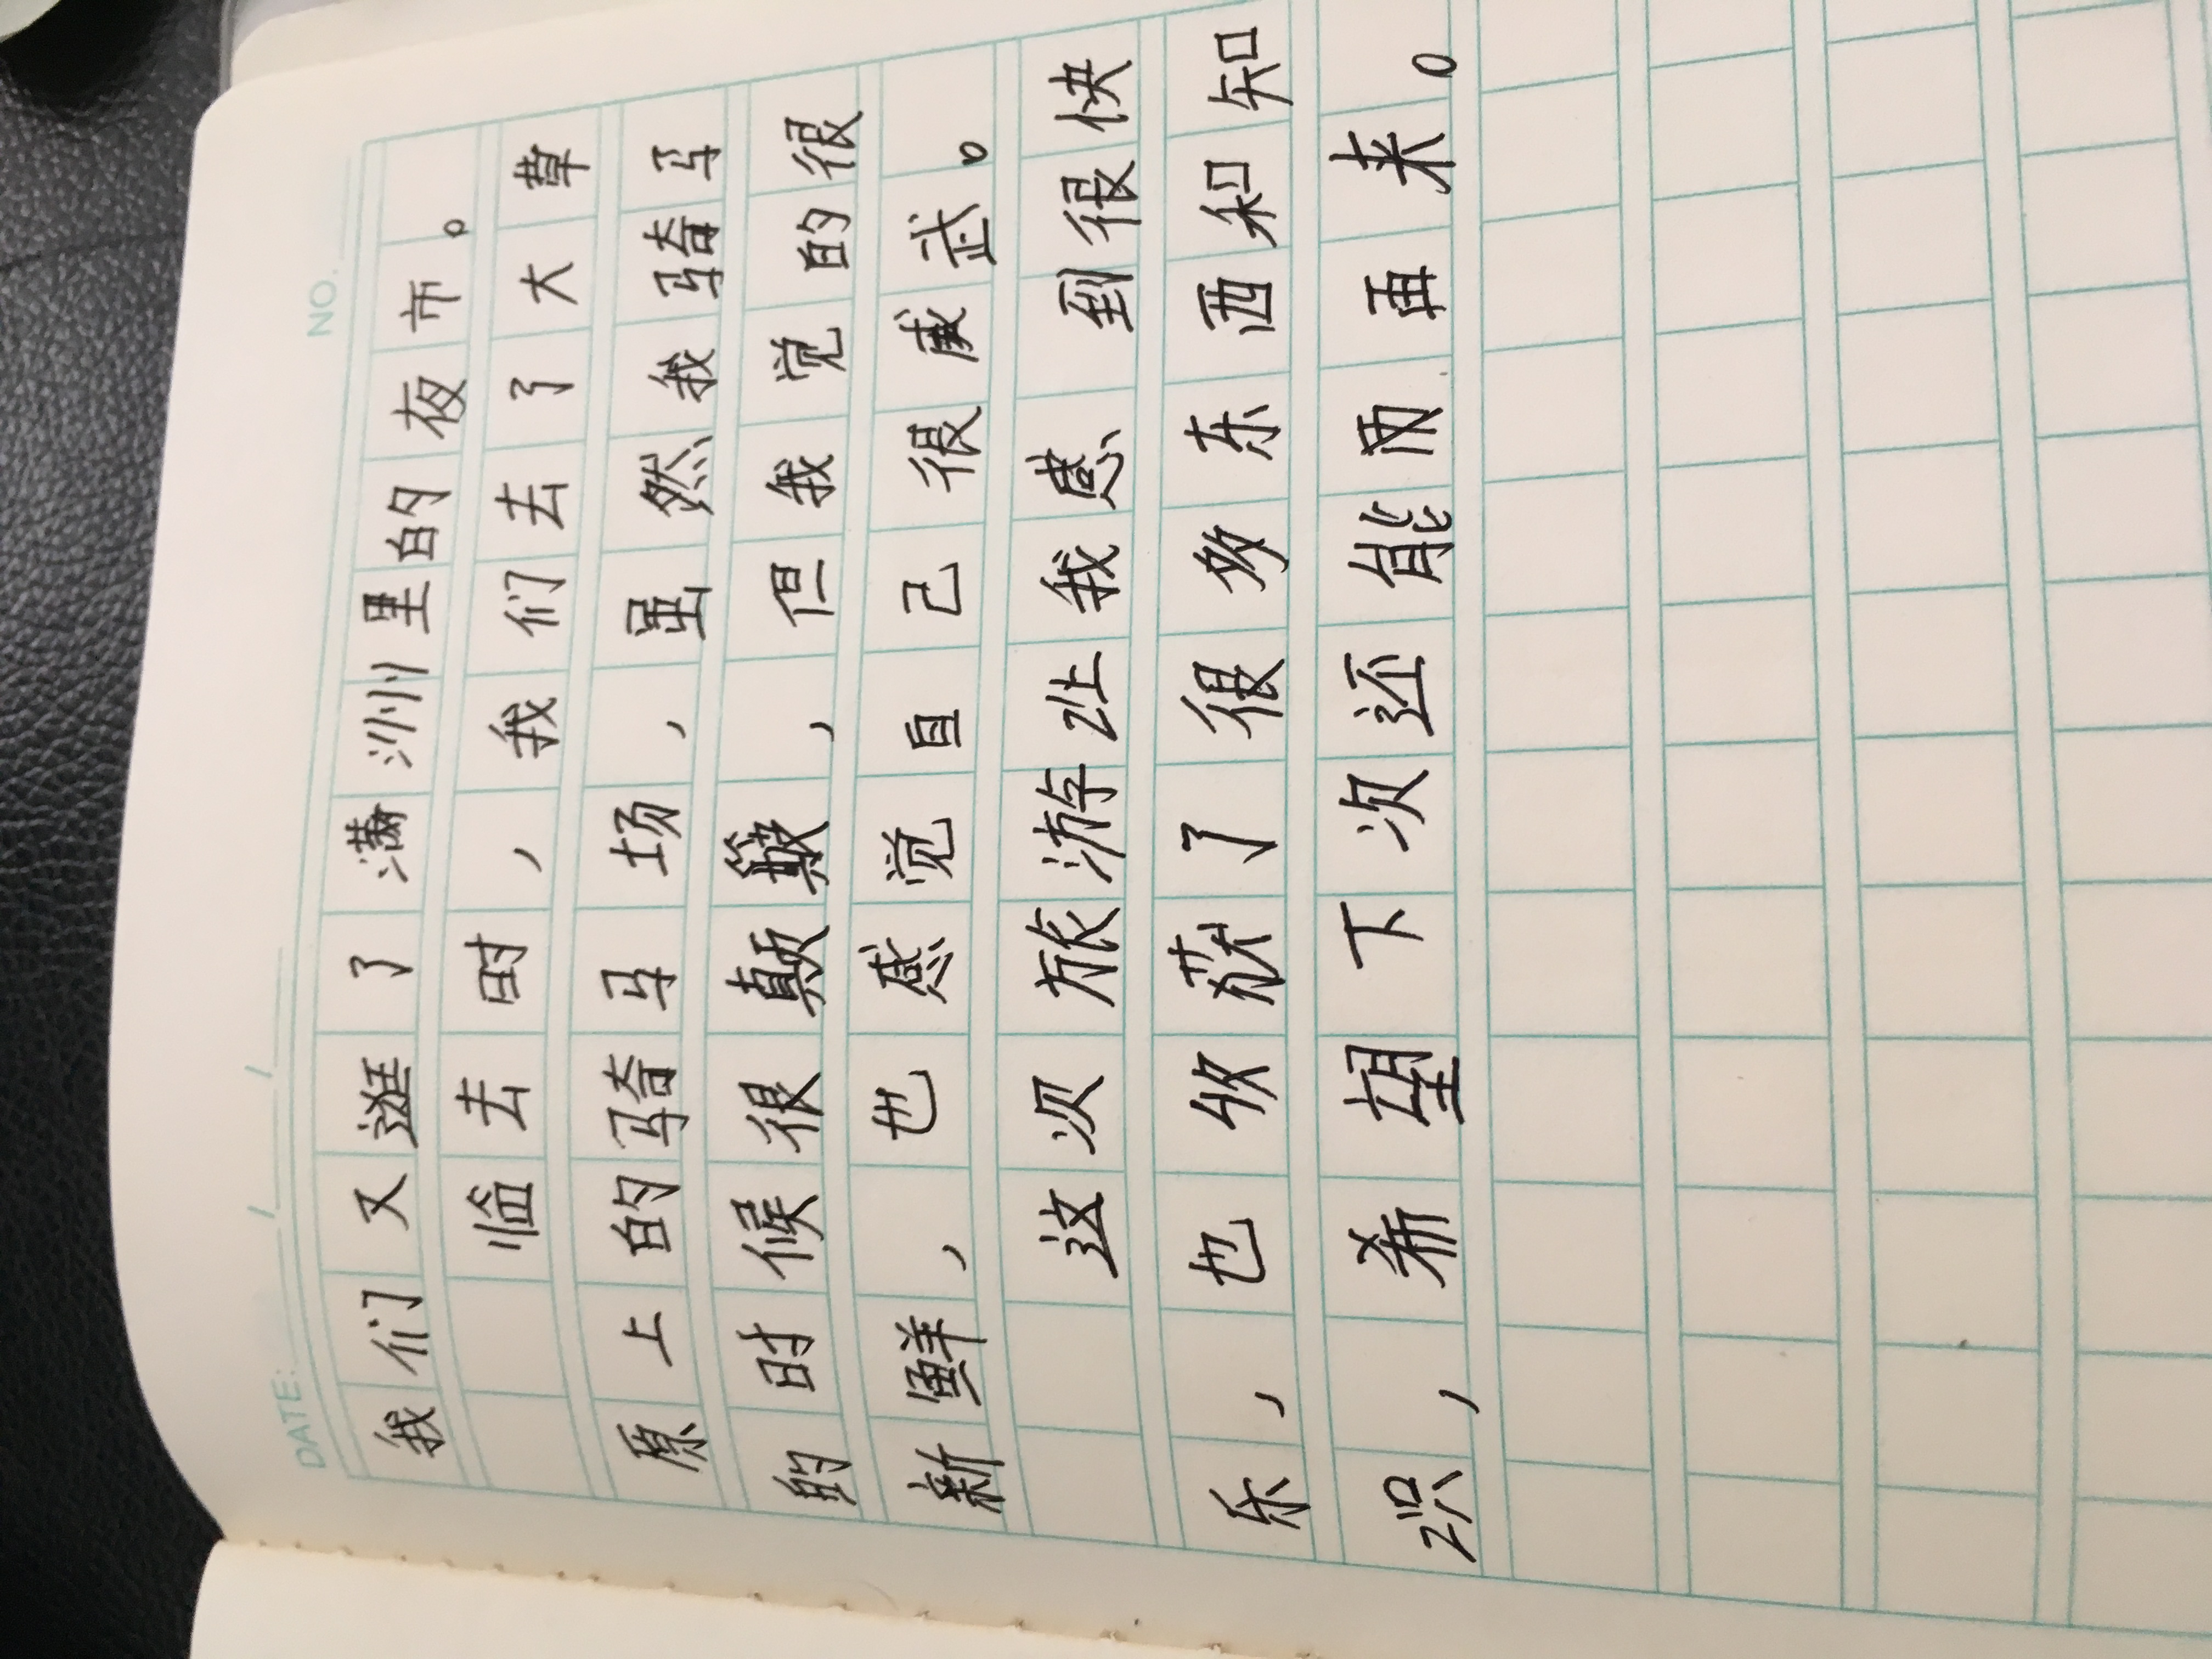 NO.
DATE: / /
我们又逛了满洲里的夜市。
临去时，我们去了大草
原上的骑马场，虽然我骑马
的时候很颠簸，但我觉的很
新鲜，也感觉自己很威武。
这次旅游让我感到很快
乐，也收获了很多东西和知
识，希望下次还能再来。